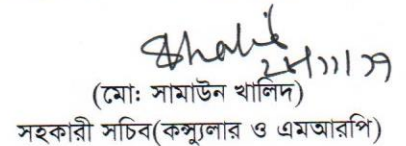 (মোঃ সামাউন খালিদ)
সহকারী সচিব(কন্স্যুলার ও এমআরপি)